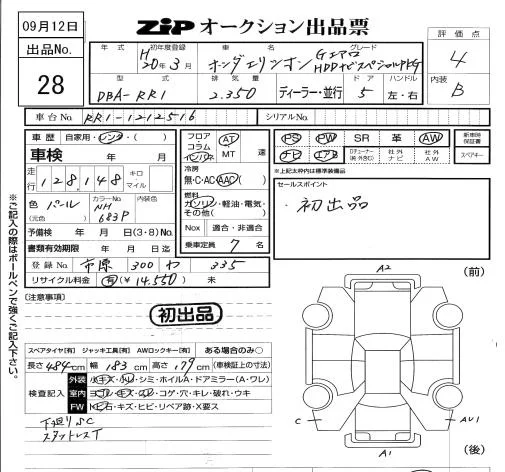 09月12日
ZiPオークション出品票
出品No.
28
評価点
4
内装
B
年式 初年度登録 車名 グレード
H20年3月 ホンダエリシオン Gエアロ
HDDナビスペシャルPKG
型式 排気量 ドア ハンドル
DBA-RR1 2.350 ディーラー・並行 5 左・右
車台No. RR1-1212516 シリアルNo.
車歴 自家用・レンタ・( )
車検 年 月
走行 128,148 キロ マイル
色 パール カラーNo. NH683P 内装色
(元色)
予備検 年 月 日(3・8)No.
書類有効期限 年 月 日迄
登録No. 市原 300 わ 335
リサイクル料金 有(¥ 14.550) 未
フロア
コラム
インパネ
AT
MT 速
冷房
無・C・AC・AAC( )
燃料
ガソリン・軽油・電気・
その他( )
Nox 適合・非適合
乗車定員 7 名
PS PW SR 革 AW
ナビ エアB TVチューナー(純・外含む) 社外ナビ 社外AW
新車時保証書
スペアキー
※上記太枠内は標準装備品
セールスポイント
・初出品
(注意事項)
初出品
スペアタイヤ[有] ジャッキ工具[有] AWロックキー[有] ある場合のみ○
長さ 484cm 幅 183cm 高さ 179cm (車検証上の寸法)
検査記入
外装 小キズ・小凹・シミ・ホイルA・ドアミラー(A・ワレ)
室内 ヨゴレ・キズ・スレ・コゲ・穴・キレ・破れ・ウキ
FW トビ石・キズ・ヒビ・リペア跡・X要ス
下廻りSC
スタットレスT
※ご記入の際はボールペンで強くご記入下さい。
A2
(前)
C
AU1
A1
(後)